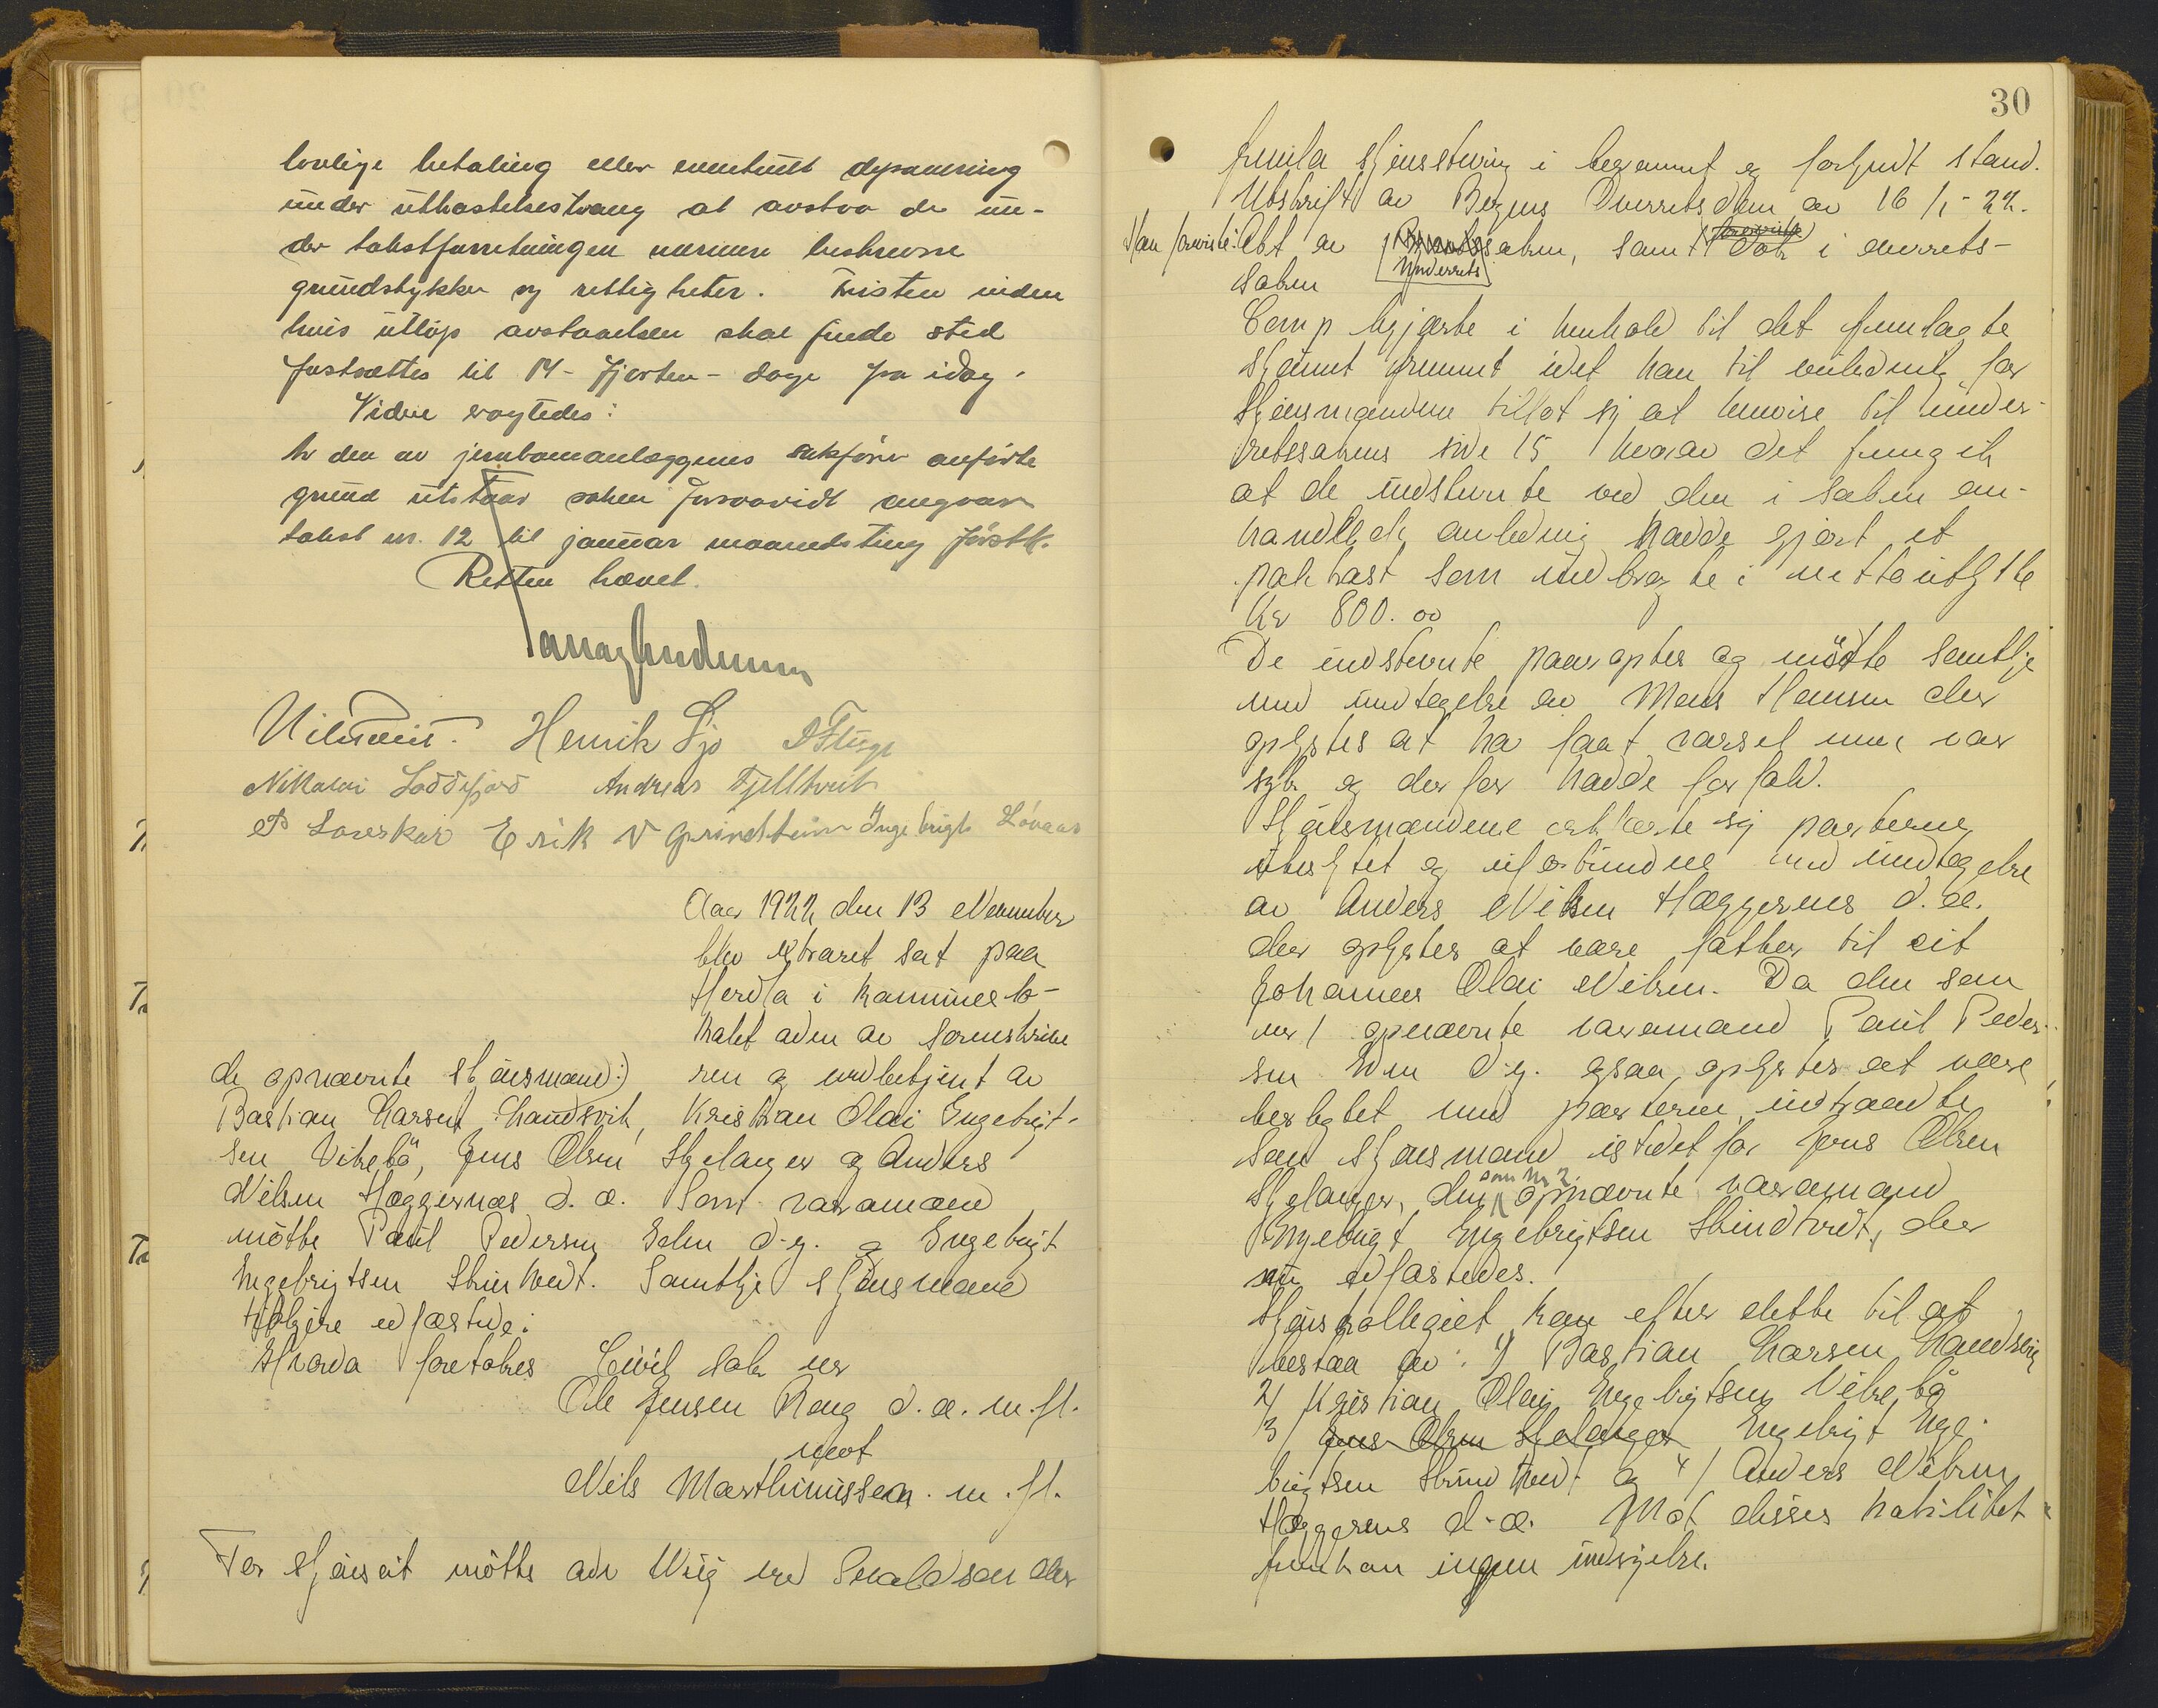 lovlige betaling eller eventuelt deponering
under utkastelsestvang at avstaa de un-
der takstforretningen nærmere beskrevne
grundstykker og rettigheter. Fristen inden
hvis utløp avstaaelsen skal finde sted
fastsættes til 14 - fjorten - dage fra idag.
Videre vagtedes:
Av den av jernbaneanlæggenes sakfører anførte
grund utstaar saken forsaavidt angaar
takst nr. 12 til januar maanedsting førstk.
Retten hævet.
Henrik Sjo
Nikolai Loddefjord Andreas Fjelltveit
Erik N Grindheim Ingebrigt Løvaas
Aar 1922 den 13 November
blev extraret sat paa
Herdla i kommunelo-
kalet adm av sorenskrive
de opnævnte skjønsmænd:) ren og medbetjent av
Bastian Larsen Landsvik, Kristian Olai Ingebrigt-
sen Vikebø, Jens Olsen Skjelanger og Anders
Nilsen Hæggernæs d.æ. Som varamænd
møtte Paul Pedersen d.y. og Ingebrigt
Ingebrigtsen Skintveit. Samtlige skjønsmænd
tidligere edfæstede.
Hvorda foretokes Civil sak nr
Ole Jensen Rong d.æ. m.fl.
mot
Nils Marthinussen m.fl.
For skjønscit møtte adv Wiig ved der
30
fremla skjønsstevning i beramet og forkyndt stand.
Utskrift av Bergens Overrets dom av 16/1-22.
Han foreviste: Akt av Underretssaken, samt dok i overrets-
saken
Comp begjærte i henhold til det fremlagte
skjønnet fremmet idet han til veiledning for
skjønsmændene tillot sig at henvise til under-
retssakens side 15 hvorav det fremgik
at de indstevnte ved den i saken om-
handlede anledning hadde gjort et
notkast som indbragte i netto utbytte
Kr 800.00
De indstevnte paaroptes og møtte samtlige
med undtagelse av Mons Hansen der
oplystes at ha faat varsel men var
syk og derfor hadde forfald.
Skjønsmændene erklærte sig parterne
ubeslektet og uforbundne med undtagelse
av Anders Nilsen Hæggernes d.æ.
der oplystes at være fætter til cit
Johannes Olai Nilsen. Da den som
nr 1 opnævnte varamand Paul Peder-
sen d.y. ogsaa oplystes at være
beslektet med parterne, indtraadte
som skjønsmand istedet for Jens Olsen
Skjelanger, den som nr 2 opnævnte varamand
Ingebrigt Ingebrigtsen Skindtveit, der
nu edfæstedes.
Skjønskollegiet kom efter dette til at
bestaa av: 1/ Bastian Larsen Landsvik
2/ Kristian Olai Ingebrigtsen Vikebø
3/ Jens Olsen Skjelanger Ingebrigt Inge-
brigtsen Skindtveit og 4/ Anders Nilsen
Hæggernes d.æ. Mot disses habilitet
fremkom ingen indsigelse.